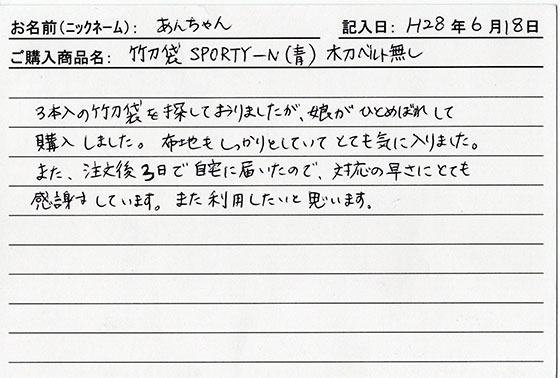 お名前(ニックネーム): あんちゃん 記入日: H28年6月18日
ご購入商品名: 竹刀袋 SPORTY-N(青) 木刀ベルト無し
3本入の竹刀袋を探しておりましたが、娘がひとめぼれして
購入しました。布地もしっかりとしていてとても気に入りました。
また、注文後3日で自宅に届いたので、対応の早さにとても
感謝をしています。また利用したいと思います。